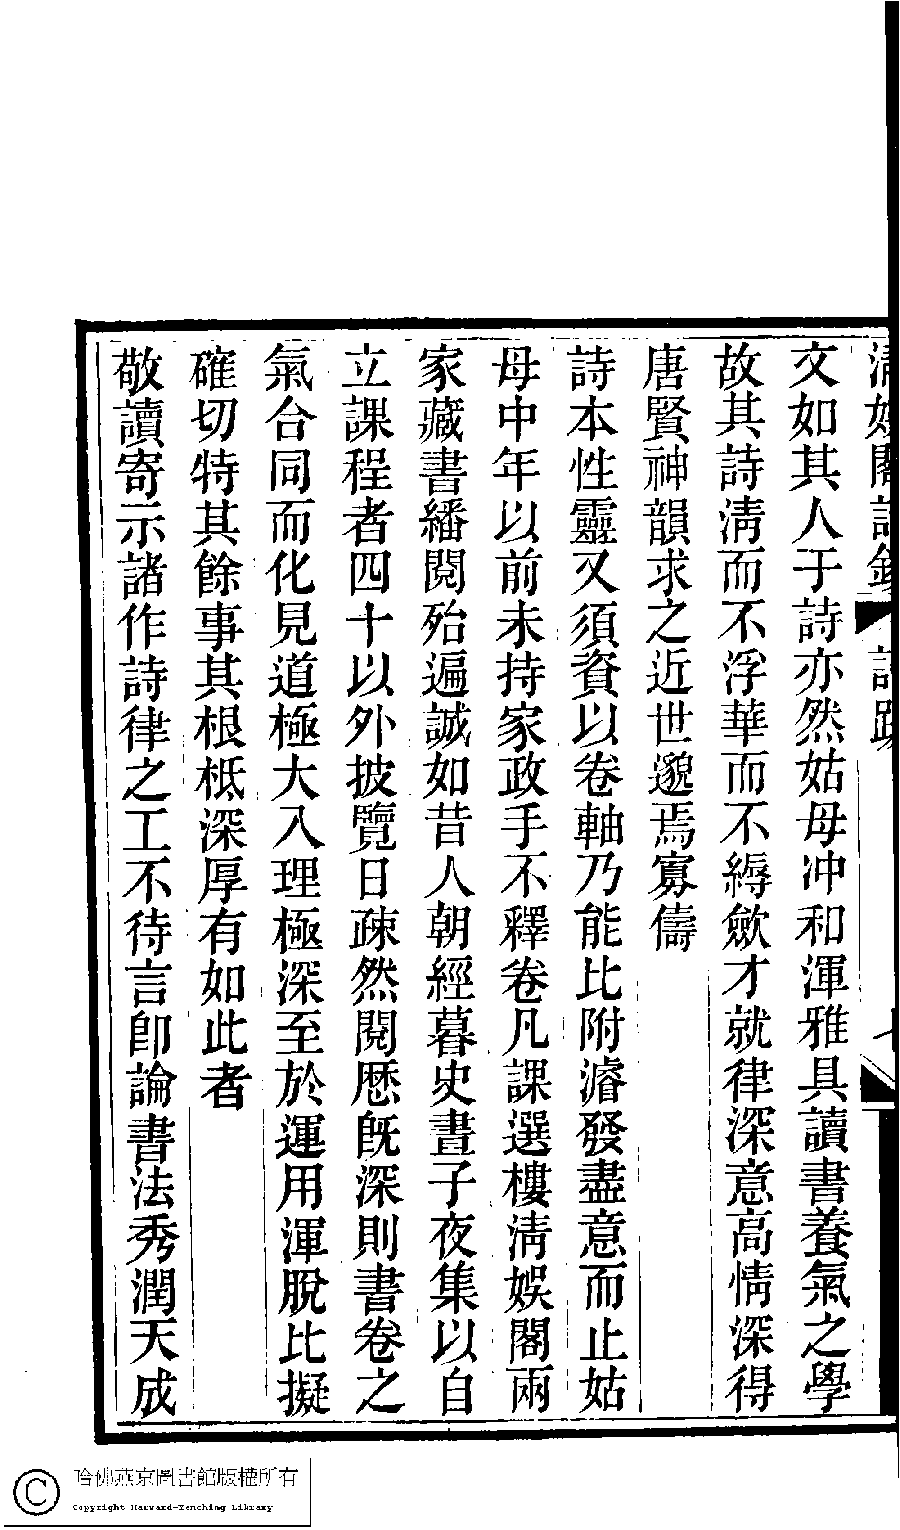 清娛閣詩鈔 詩跋
文如其人于詩亦然姑母冲和渾雅具讀書養氣之學
故其詩淸而不浮華而不縟斂才就律深意高情深得
唐賢神韻求之近世邈焉寡儔
詩本性靈又須資以卷軸乃能比附濬發盡意而止姑
母中年以前未持家政手不釋卷凡課選樓淸娛閣兩
家藏書繙閱殆遍誠如昔人朝經暮史晝子夜集以自
立課程者四十以外披覽日疎然閱歷旣深則書卷之
氣合同而化見道極大入理極深至於運用渾脫比擬
確切特其餘事其根柢深厚有如此者
敬讀寄示諸作詩律之工不待言卽論書法秀潤天成
哈佛燕京圖書館版權所有
Copyright Harvard-Yenching Library